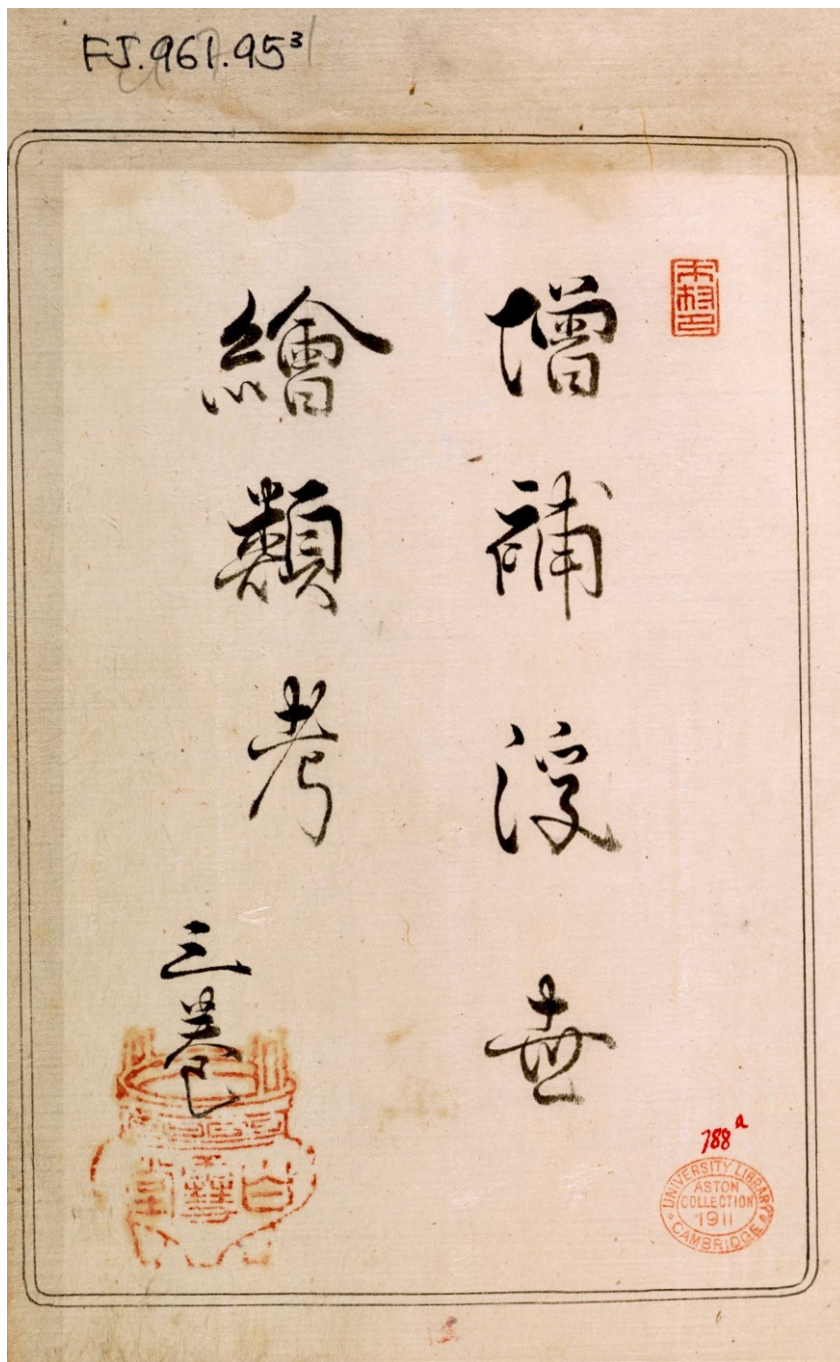 FJ.961.95³
增補浮世
繪類考
三巻
788ª
UNIVERSITY LIBRARY
ASTON
COLLECTION
1911
CAMBRIDGE